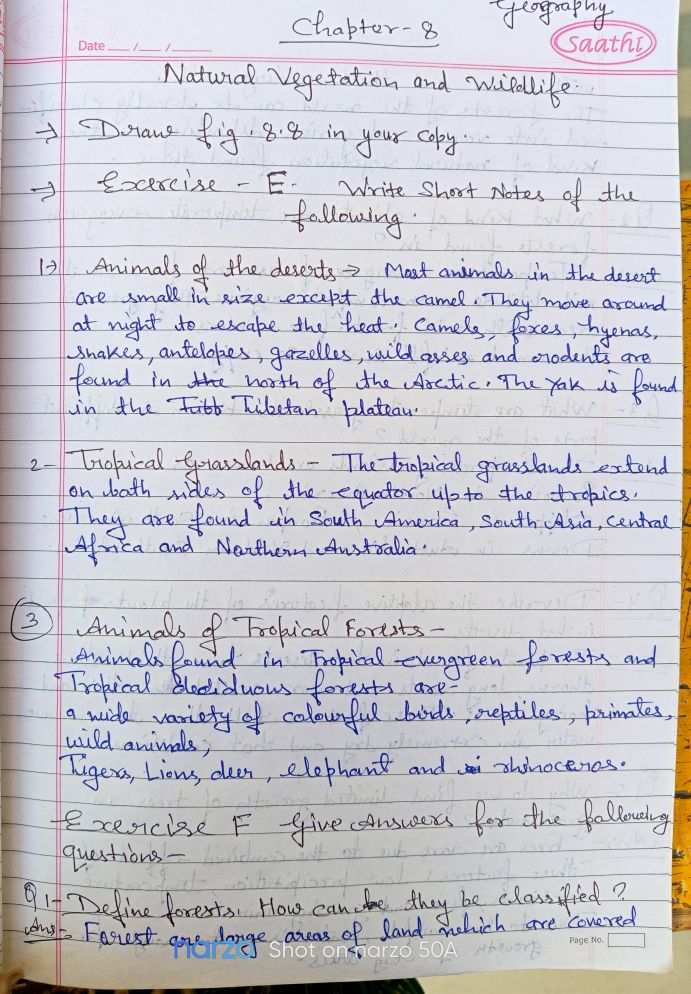 Geography
Chapter-8
Date __/__/__
Saathi
Natural Vegetation and Wildlife.
→ Draw fig. 8.8 in your copy.
→ Exercise - E- Write Short Notes of the
following.
1→ Animals of the deserts → Most animals in the desert
are small in size except the camel. They move around
at night to escape the heat. Camels, foxes, hyenas,
snakes, antelopes, gazelles, wild asses and rodents are
found in the north of the Arctic. The Yak is found
in the Tibetan plateau.
2- Tropical Grasslands - The tropical grasslands extend
on both sides of the equator upto the tropics.
They are found in South America, South Asia, Central
Africa and Northern Australia.
3 Animals of Tropical Forests-
Animals found in Tropical evergreen forests and
Tropical dediduous forests are-
a wide variety of colourful birds, reptiles, primates,
wild animals,
Tigers, Lions, deer, elephant and rhinoceros.
Exercise F Give Answers for the following
questions-
Q1- Define forests. How can they be classified?
Ans:- Forest are large areas of land which are covered
narzo Shot on narzo 50A
Page No.